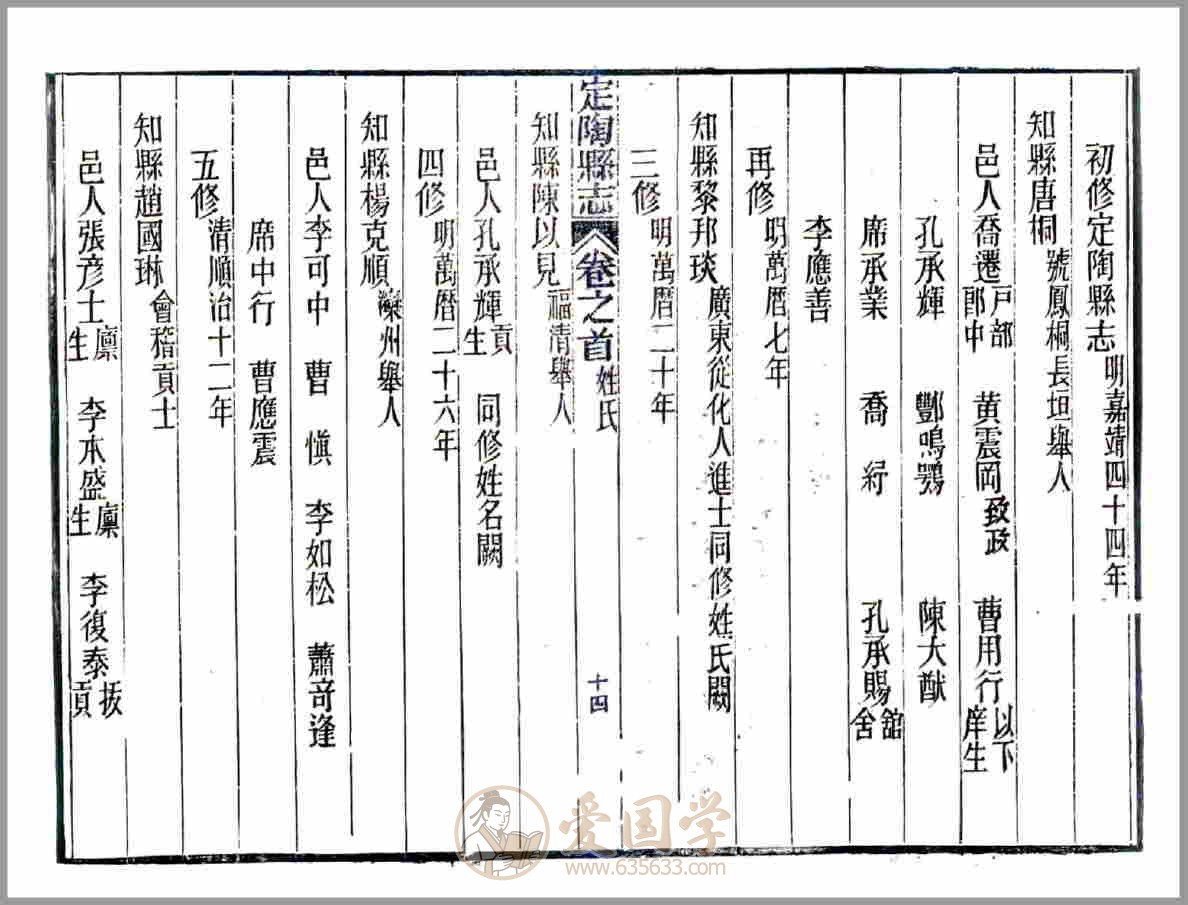 初修定陶縣志明嘉靖四十四年
知縣唐桐號鳳桐長垣舉人
邑人喬遷戸部郎中 黄震岡致政 曹用行以下庠生
孔承輝 酆鳴鶚 陳大猷
席承業 喬紆 孔承賜舘舍
李應善
再修明萬曆七年
知縣黎邦琰廣東從化人進士同修姓氏闕
三修明萬曆二十年
定陶縣志 卷之首 姓氏 十四
知縣陳以見福清舉人
邑人孔承輝貢生 同修姓名闕
四修明萬曆二十六年
知縣楊克順灤州舉人
邑人李可中 曹愼 李如松 蕭竒逢
席中行 曹應震
五修清順治十二年
知縣趙國琳會稽貢士
邑人張彦士廪生 李本盛廪生 李復泰拔貢
爱国学
www.635633.com